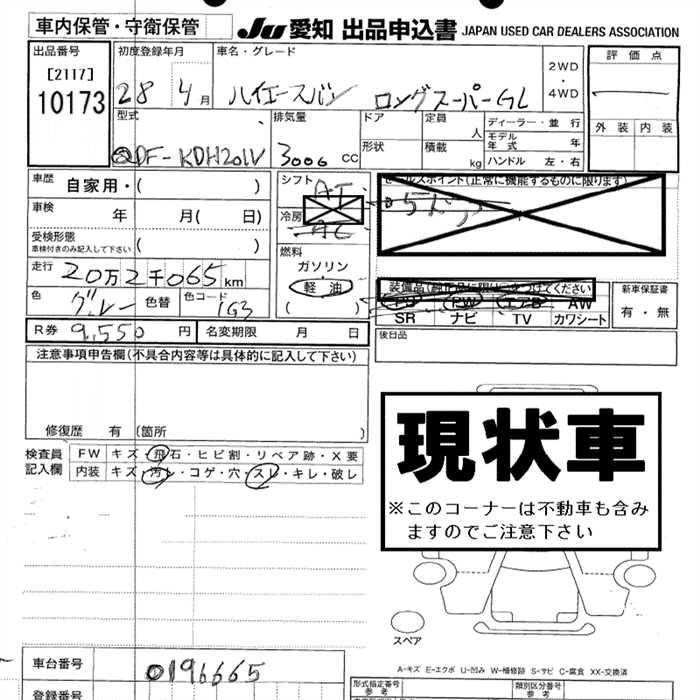 車内保管・守衛保管
JU 愛知 出品申込書 JAPAN USED CAR DEALERS ASSOCIATION
出品番号
[2117]
10173
初度登録年月
28 4月
車名・グレード
ハイエースバン ロングスーパーGL
2WD
・
4WD
評価点
外装 内装
型式
QDF-KDH201V
排気量
3000 CC
ドア
形状
定員
人
積載
kg
ディーラー・並行
モデル年式 年
ハンドル 左・右
車歴 自家用・( )
車検 年 月( 日)
受検形態
車検付きのみ記入して下さい ( )
走行 20万2千065km
色 グレー 色替 色コード 1G3
R券 9,550 円 名変期限 月 日
シフト AT
冷房 AC
燃料
ガソリン・
軽油
( )
セールスポイント(正常に機能するものに限ります)
5ドア
装備品(純正品に限り○をつけてください)
PS PW エアB AW
SR ナビ TV カワシート
新車保証書
有・無
後日品
注意事項申告欄(不具合内容等は具体的に記入して下さい)
修復歴 有 (箇所 )
検査員記入欄
FW キズ・飛石・ヒビ割・リペア跡・X要
内装 キズ・汚レ・コゲ・穴・スレ・キレ・破レ
現状車
※このコーナーは不動車も含み
ますのでご注意下さい
スペア
A-キズ E-エクボ U-凹み W-補修跡 S-サビ C-腐食 XX-交換済
車台番号 0196665
登録番号
型式指定番号
参考
類別区分番号
参考